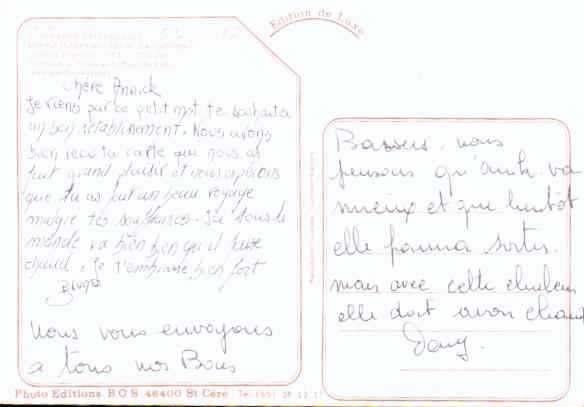 Edition de Luxe
01280017
L'AVEYRON PITTORESQUE
RODEZ (12000) alt. 630 m. La Cathédrale
Clocher construit
gothique flamboyant
Chère Annick
Je viens par ce petit mot te souhaiter
un bon rétablissement. Nous avons
bien recu ta carte qui nous as
fait grand plaisir et nous espérons
que tu as fait un beau voyage
malgré tes souffrances. Ici tous le
monde va bien bien qu'il fasse
chaud. Je t'embrasse bien fort
Bruno
Nous vous envoyons
a tous nos Bons
Baisers. nous
pensons qu'Anita va
mieux et que bientôt
elle pourra sortir.
mais avec cette chaleur
elle doit avoir chaud
Dany.
Photo Editions BOS 46400 St. Céré Tél. (65) 38 13 17